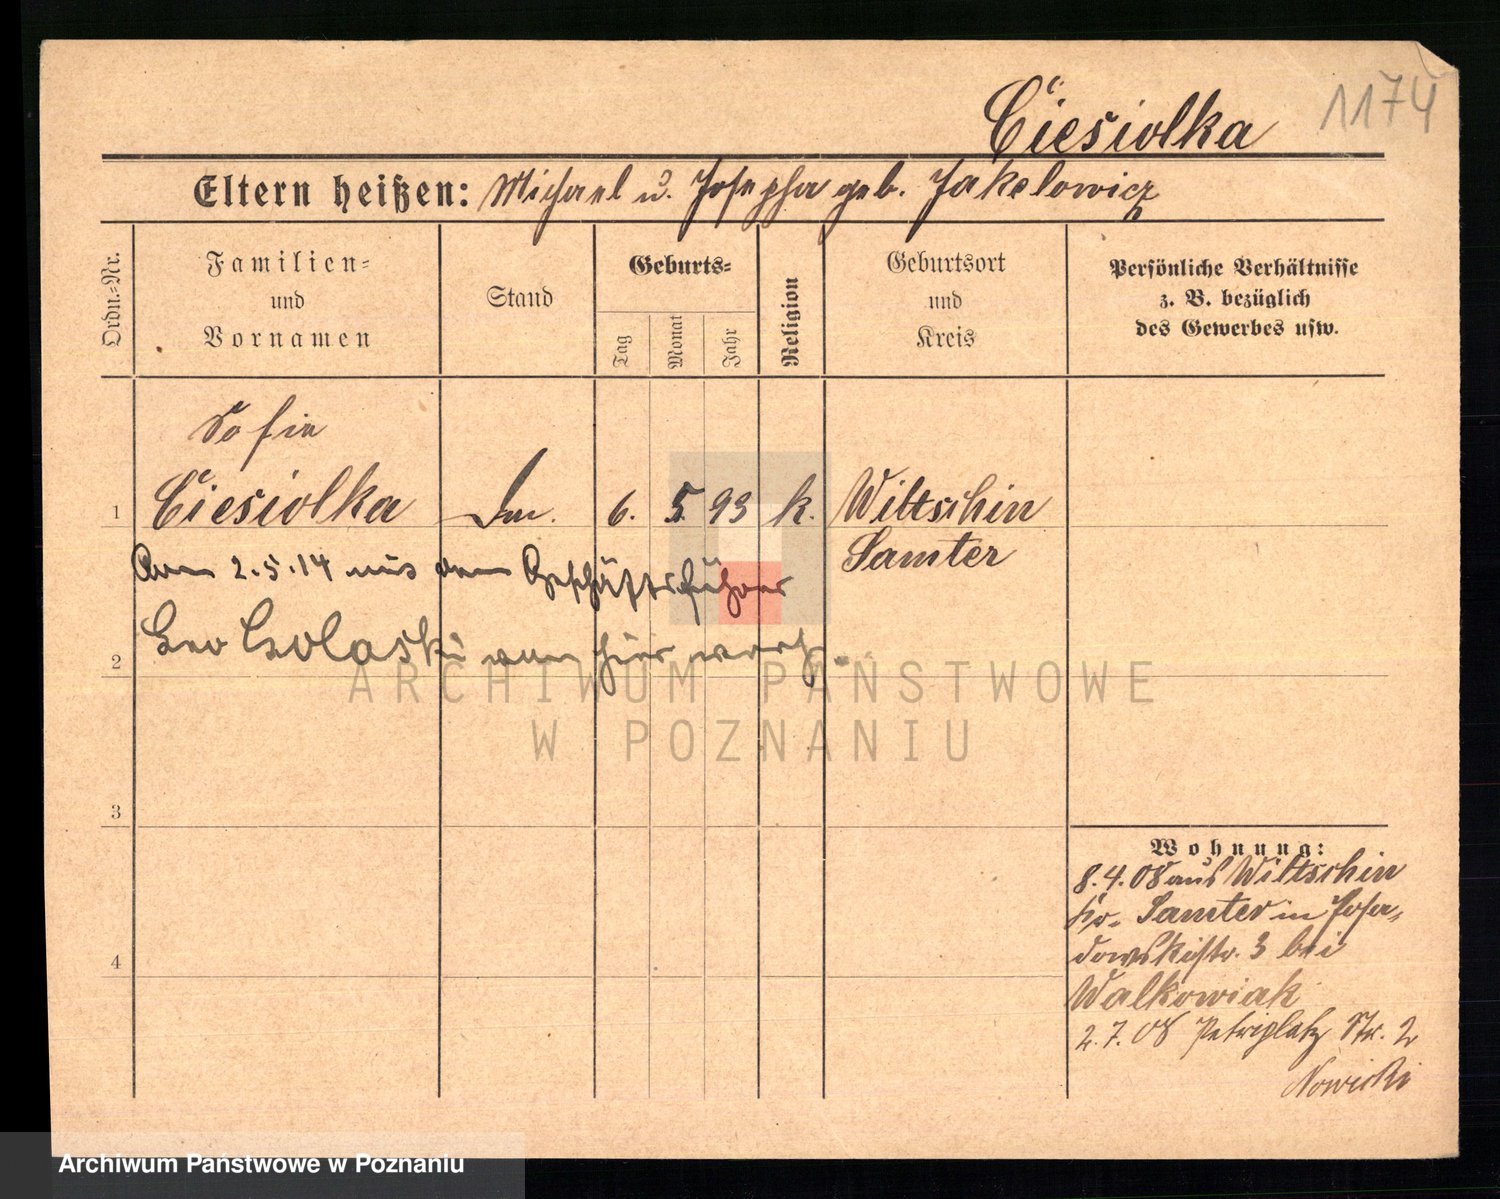 1174
Ciesiolka
Eltern heißen: Michael u. Josepha geb. Jakelowicz
Ordn.-Nr.
Familien-
und
Vornamen
Stand
Geburts-
Tag
Monat
Jahr
Religion
Geburtsort
und
Kreis
Persönliche Verhältnisse
z. B. bezüglich
des Gewerbes usw.
Sofie
1 Ciesiolka 6. 5. 93 k. Wiltschin
Samter
Am 2.5.14 mit dem Geschäftsführer
2 Leo von hier verh.
3
4
Wohnung:
8.4.08 aus Wiltschin
Kr. Samter in Posa-
dowskistr. 3 bei
Walkowiak
2.7.08 Petriplatz Nr. 2
Nowicki
ARCHIWUM PAŃSTWOWE
W POZNANIU
Archiwum Państwowe w Poznaniu